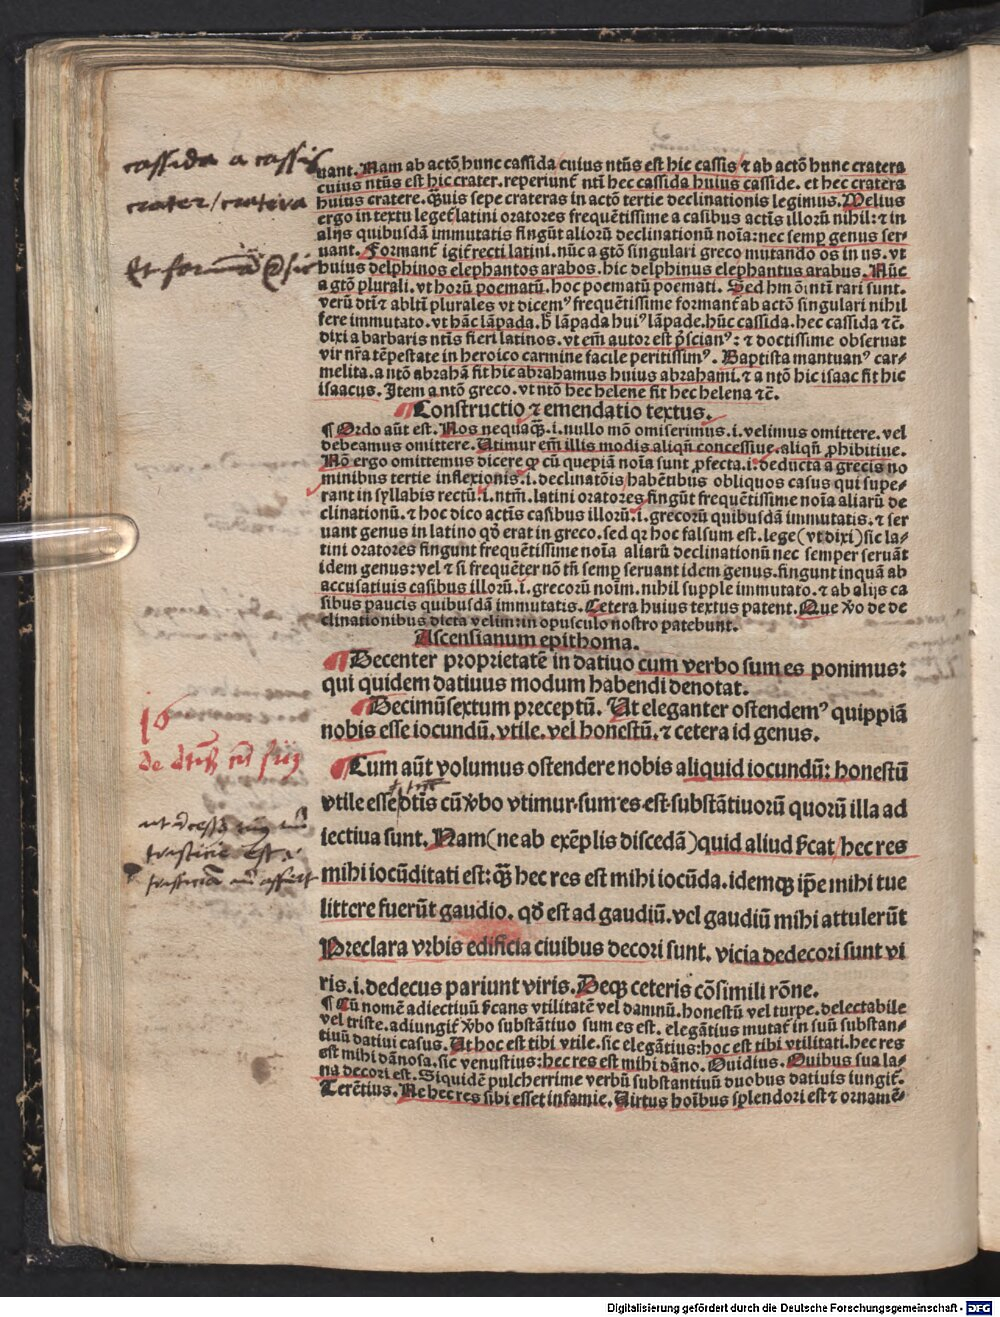 cassida a cassis
crater / cratera
uant. Nam ab actō hunc cassida cuius ntūs est hic cassis ⁊ ab actō hunc cratera
cuius ntūs est hic crater. reperiunt̄ ntī hec cassida huius casside. et hec cratera
huius cratere. q̄uis sepe crateras in actō tertie declinationis legimus. Melius
ergo in textu leget̄ latini oratores frequētissime a casibus actīs illorū nihil: ⁊ in
alijs quibusdā immutatis fingūt aliorū declinationū noīa: nec semp genus ser⸗
uant. Formant̄ igit̄ recti latini. nūc a gtō singulari greco mutando os in us. vt
huius delphinos elephantos arabos. hic delphinus elephantus arabus. Nūc
a gtō plurali. vt horū poematū. hoc poematū poemati. Sed hm̄ oīntū rari sunt.
verū dtī ⁊ abltī plurales vt dicemꝰ frequētissime formant̄ ab actō singulari nihil
fere immutato. vt hāc lāpada. h̄ lāpada huiꝰ lāpade. hūc cassida. hec cassida ⁊c̄.
dixi a barbaris ntīs fieri latinos. vt em̄ autor est p̄scianꝰ: ⁊ doctissime obseruat
vir nr̄a tēpestate in heroico carmine facile peritissimꝰ. Baptista mantuanꝰ car⸗
melita. a ntō abrahā fit hic abrahamus huius abrahami. ⁊ a ntō hic isaac fit hic
isaacus. Item a ntō greco. vt ntō hec helene fit hec helena ⁊c̄.
¶ Constructio ⁊ emendatio textus.
¶ Ordo aūt est. Nos nequaq̄. i. nullo mō omiserimus. i. velimus omittere. vel
debeamus omittere. Utimur em̄ illis modis aliqn̄ concessiue. aliqn̄ ꝓhibitiue.
Nō ergo omittemus dicere ꝙ cū quepiā noīa sunt ꝓfecta. i. deducta a grecis no
minibus tertie inflexionis. i. declinatōis habētibus obliquos casus qui supe⸗
rant in syllabis rectū. i. ntm̄. latini oratores fingūt frequētissime noīa aliarū de
clinationū. ⁊ hoc dico actīs casibus illorū. i. grecorū quibusdā immutatis. ⁊ ser
uant genus in latino qd̄ erat in greco. sed qꝛ hoc falsum est. lege (vt dixi) sic la⸗
tini oratores fingunt frequētissime noīa aliarū declinationū nec semper seruāt
idem genus: vel ⁊ si frequēter nō tn̄ semp seruant idem genus. fingunt inquā ab
accusatiuis casibus illorū. i. grecorū noīm. nihil supple immutato. ⁊ ab alijs ca
sibus paucis quibusdā immutatis. Cetera huius textus patent. Que ꝟo de de
clinationibus dicta velim in opusculo nostro patebunt.
Ascensianum epithoma.
¶ Decenter proprietatē in datiuo cum verbo sum es ponimus:
qui quidem datiuus modum habendi denotat.
16
¶ Decimūsextum preceptū. Ut eleganter ostendemꝰ quippiā
nobis esse iocundū. vtile. vel honestū. ⁊ cetera id genus.
¶ Cum aūt volumus ostendere nobis aliquid iocundū: honestū
vtile esse ptīs cū ꝟbo vtimur. sum es est. substātiuorū quorū illa ad
iectiua sunt. Nam (ne ab exēplis discedā) quid aliud s̄cat / hec res
mihi iocūditati est: q̄ hec res est mihi iocūda. idemqꝫ ip̄e mihi tue
littere fuerūt gaudio. qd̄ est ad gaudiū. vel gaudiū mihi attulerūt
Preclara vrbis edificia ciuibus decori sunt. vicia dedecori sunt vi
ris. i. dedecus pariunt viris. Deqꝫ ceteris cōsimili rōne.
¶ Cū nomē adiectiuū s̄cans vtilitatē vel damnū. honestū vel turpe. delectabile
vel triste. adiungit̄ ꝟbo substātiuo sum es est. elegātius mutat̄ in suū substan⸗
tiuū datiui casus. Ut hoc est tibi vtile. sic elegātius: hoc est tibi vtilitati. hec res
est mihi dānosa. sic venustius: hec res est mihi dāno. Ouidius. Ouibus sua la⸗
na decori est. Siquidē pulcherrime verbū substantiuū duobus datiuis iungit̄.
Terētius. Ne hec res sibi esset infamie. Uirtus hoībus splendori est ⁊ ornamē⸗
Digitalisierung gefördert durch die Deutsche Forschungsgemeinschaft - DFG